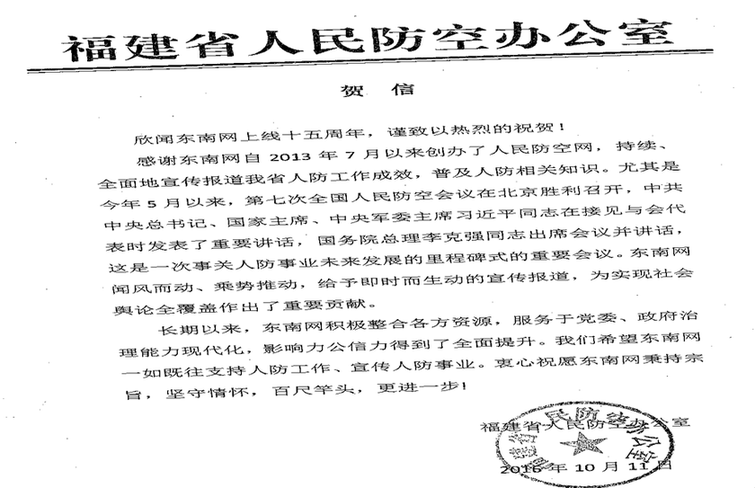 福建省人民防空办公室
贺 信
欣闻东南网上线十五周年，谨致以热烈的祝贺！
感谢东南网自 2013 年 7 月以来创办了人民防空网，持续、
全面地宣传报道我省人防工作成效，普及人防相关知识。尤其是
今年 5 月以来，第七次全国人民防空会议在北京胜利召开，中共
中央总书记、国家主席、中央军委主席习近平同志在接见与会代
表时发表了重要讲话，国务院总理李克强同志出席会议并讲话，
这是一次事关人防事业未来发展的里程碑式的重要会议。东南网
闻风而动、乘势推动，给予即时而生动的宣传报道，为实现社会
舆论全覆盖作出了重要贡献。
长期以来，东南网积极整合各方资源，服务于党委、政府治
理能力现代化，影响力公信力得到了全面提升。我们希望东南网
一如既往支持人防工作、宣传人防事业。衷心祝愿东南网秉持宗
旨，坚守情怀，百尺竿头，更进一步！
福建省人民防空办公室
福建省人民防空办公室
2016 年 10 月 11 日